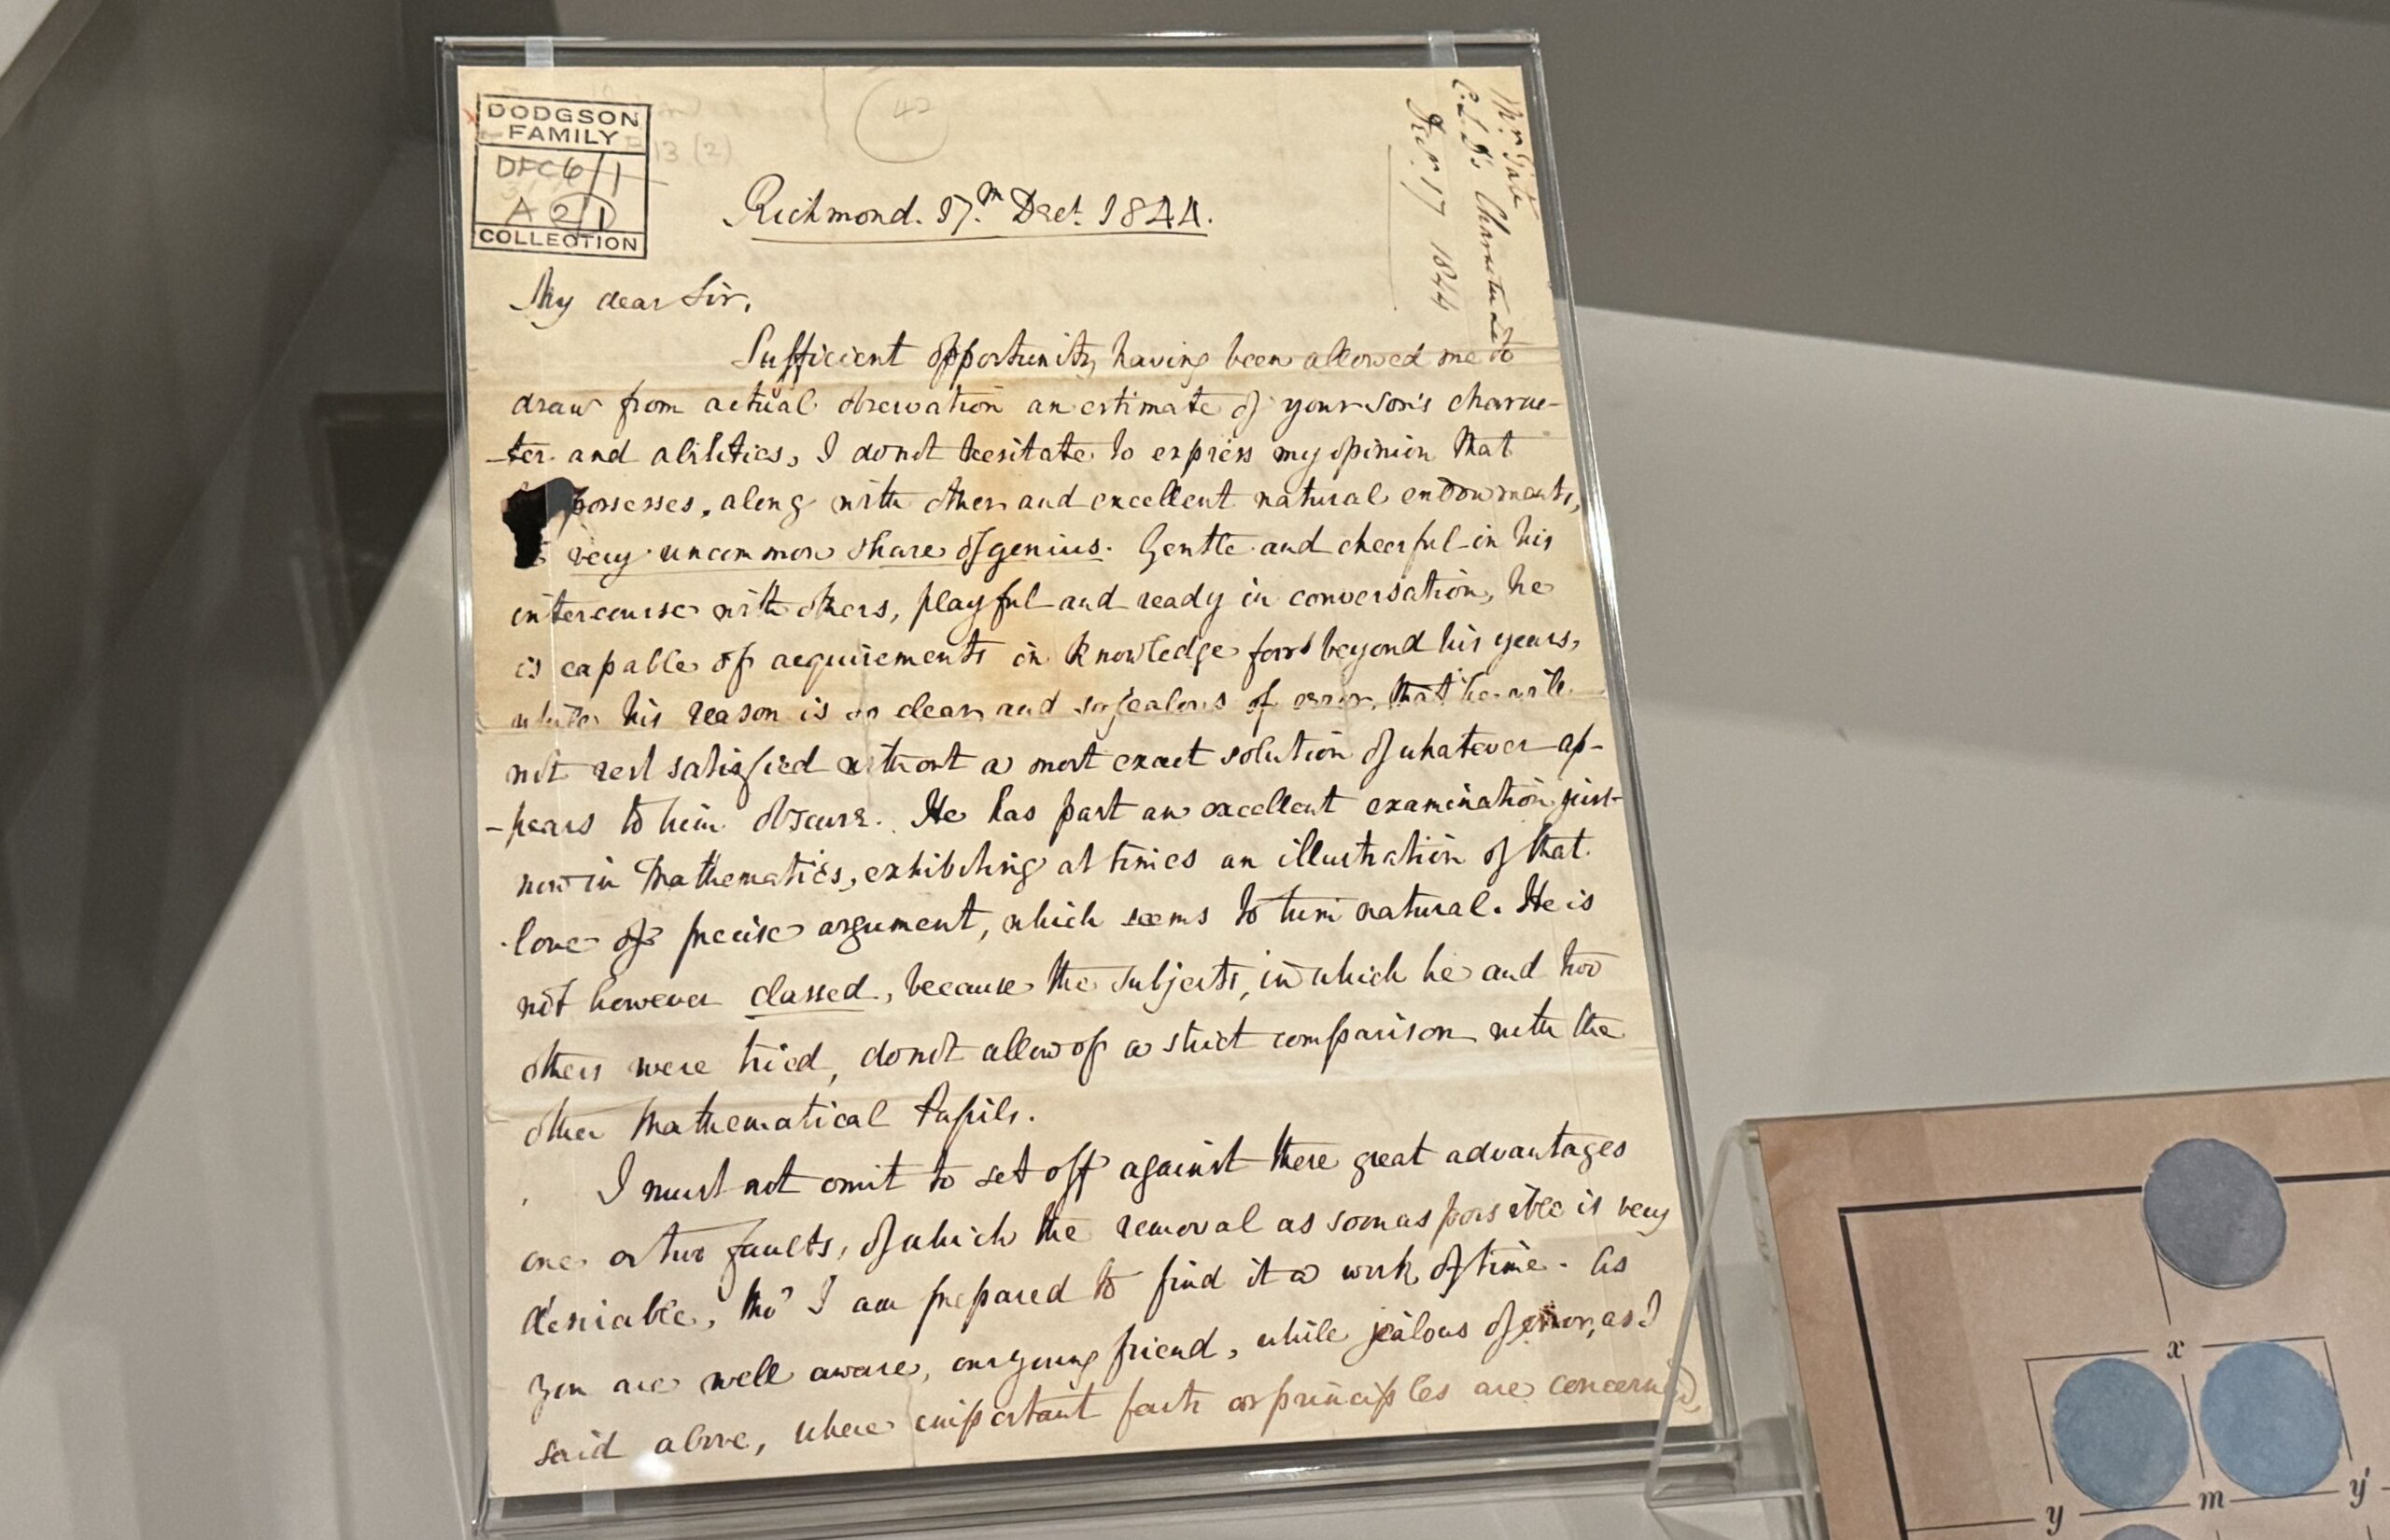 DODGSON
FAMILY
DFC6/1
A 2/1
COLLECTION
13 (2)
42
Richmond. 17.th Dect. 1844.
My dear Sir,
Sufficient opportunity having been allowed me to
draw from actual observation an estimate of your son's charac-
-ter and abilities, I do not hesitate to express my opinion that
possesses, along with other and excellent natural endowments,
very uncommon share of genius. Gentle and cheerful in his
intercourse with others, playful and ready in conversation, he
is capable of acquirements in knowledge far beyond his years,
while his reason is so clear and so jealous of error, that he will
not rest satisfied without a most exact solution of whatever ap-
-pears to him obscure. He has past an excellent examination just
now in Mathematics, exhibiting at times an illustration of that
love of precise argument, which seems to him natural. He is
not however classed, because the subjects, in which he and two
others were tried, do not allow of a strict comparison with the
other Mathematical Pupils.
I must not omit to set off against these great advantages
one or two faults, of which the removal as soon as possible is very
desirable, tho' I am prepared to find it a work of time. As
you are well aware, our young friend, while jealous of error, as I
said above, where important faith or principles are concerned,
Mr. Tate
C. L. D's Character
17 1844
x
y m y'